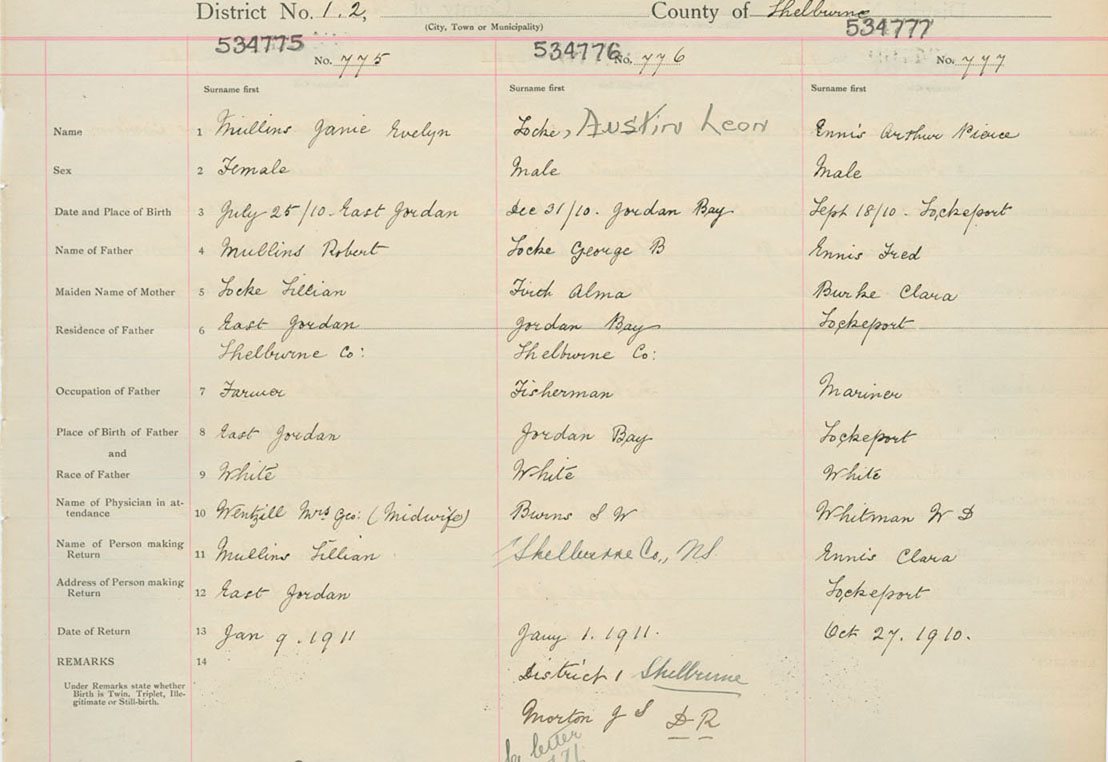 District No. 1.2, County of Shelburne
(City, Town or Municipality)
534775 534776 534777
No. 775 No. 776 No. 777
Surname first Surname first Surname first
Name 1 Mullins Janie Evelyn Locke, Austin Leon Ennis Arthur Pierce
Sex 2 Female Male Male
Date and Place of Birth 3 July 25/10. East Jordan Dec 31/10. Jordan Bay Sept 18/10 - Lockeport
Name of Father 4 Mullins Robert Locke George B Ennis Fred
Maiden Name of Mother 5 Locke Lillian Firth Alma Burke Clara
Residence of Father 6 East Jordan Jordan Bay Lockeport
Shelburne Co: Shelburne Co:
Occupation of Father 7 Farmer Fisherman Mariner
Place of Birth of Father 8 East Jordan Jordan Bay Lockeport
and
Race of Father 9 White White White
Name of Physician in at-
tendance 10 Wentzell Mrs Geo: (Midwife) Burns S W Whitman W D
Name of Person making
Return 11 Mullins Lillian Shelburne Co., NS. Ennis Clara
Address of Person making
Return 12 East Jordan Lockeport
Date of Return 13 Jan 9. 1911 Jany 1. 1911. Oct 27. 1910.
REMARKS 14 District 1 Shelburne
Under Remarks state whether
Birth is Twin, Triplet, Ille-
gitimate or Still-birth.
Morton J S D-R
letter